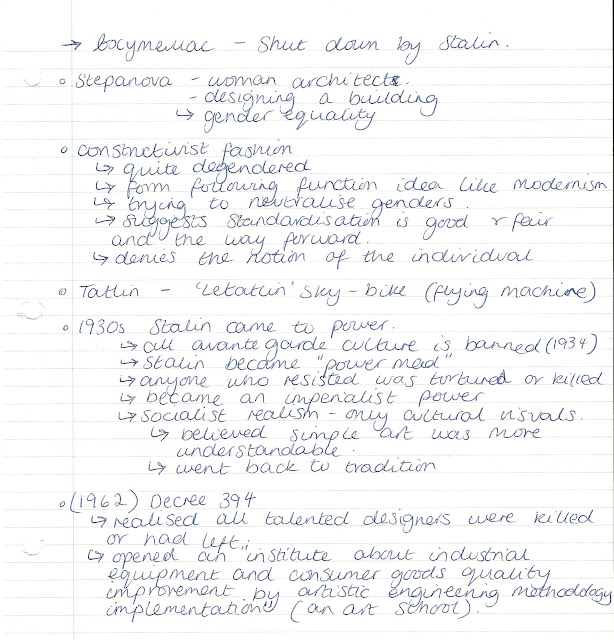 → Вхутемас - Shut down by Stalin.
◦ Stepanova - woman architect.
- designing a building
↳ gender equality
◦ Constructivist fashion
↳ quite degendered
↳ form following function idea like modernism
↳ trying to neutralise genders.
↳ suggests standardisation is good & fair
and the way forward.
↳ denies the notion of the individual
◦ Tatlin - 'Letatlin' sky-bike (flying machine)
◦ 1930s Stalin came to power.
↳ all avante garde culture is banned (1934)
↳ Stalin became "power mad"
↳ anyone who resisted was tortured or killed
↳ became an imperialist power
↳ socialist realism - only cultural visuals.
↳ believed simple art was more
understandable.
↳ went back to tradition
◦ (1962) Decree 394
↳ realised all talented designers were killed
or had left.
↳ opened an "institute about industrial
equipment and consumer goods quality
improvement by artistic engineering methodology
implementation" (an art school).